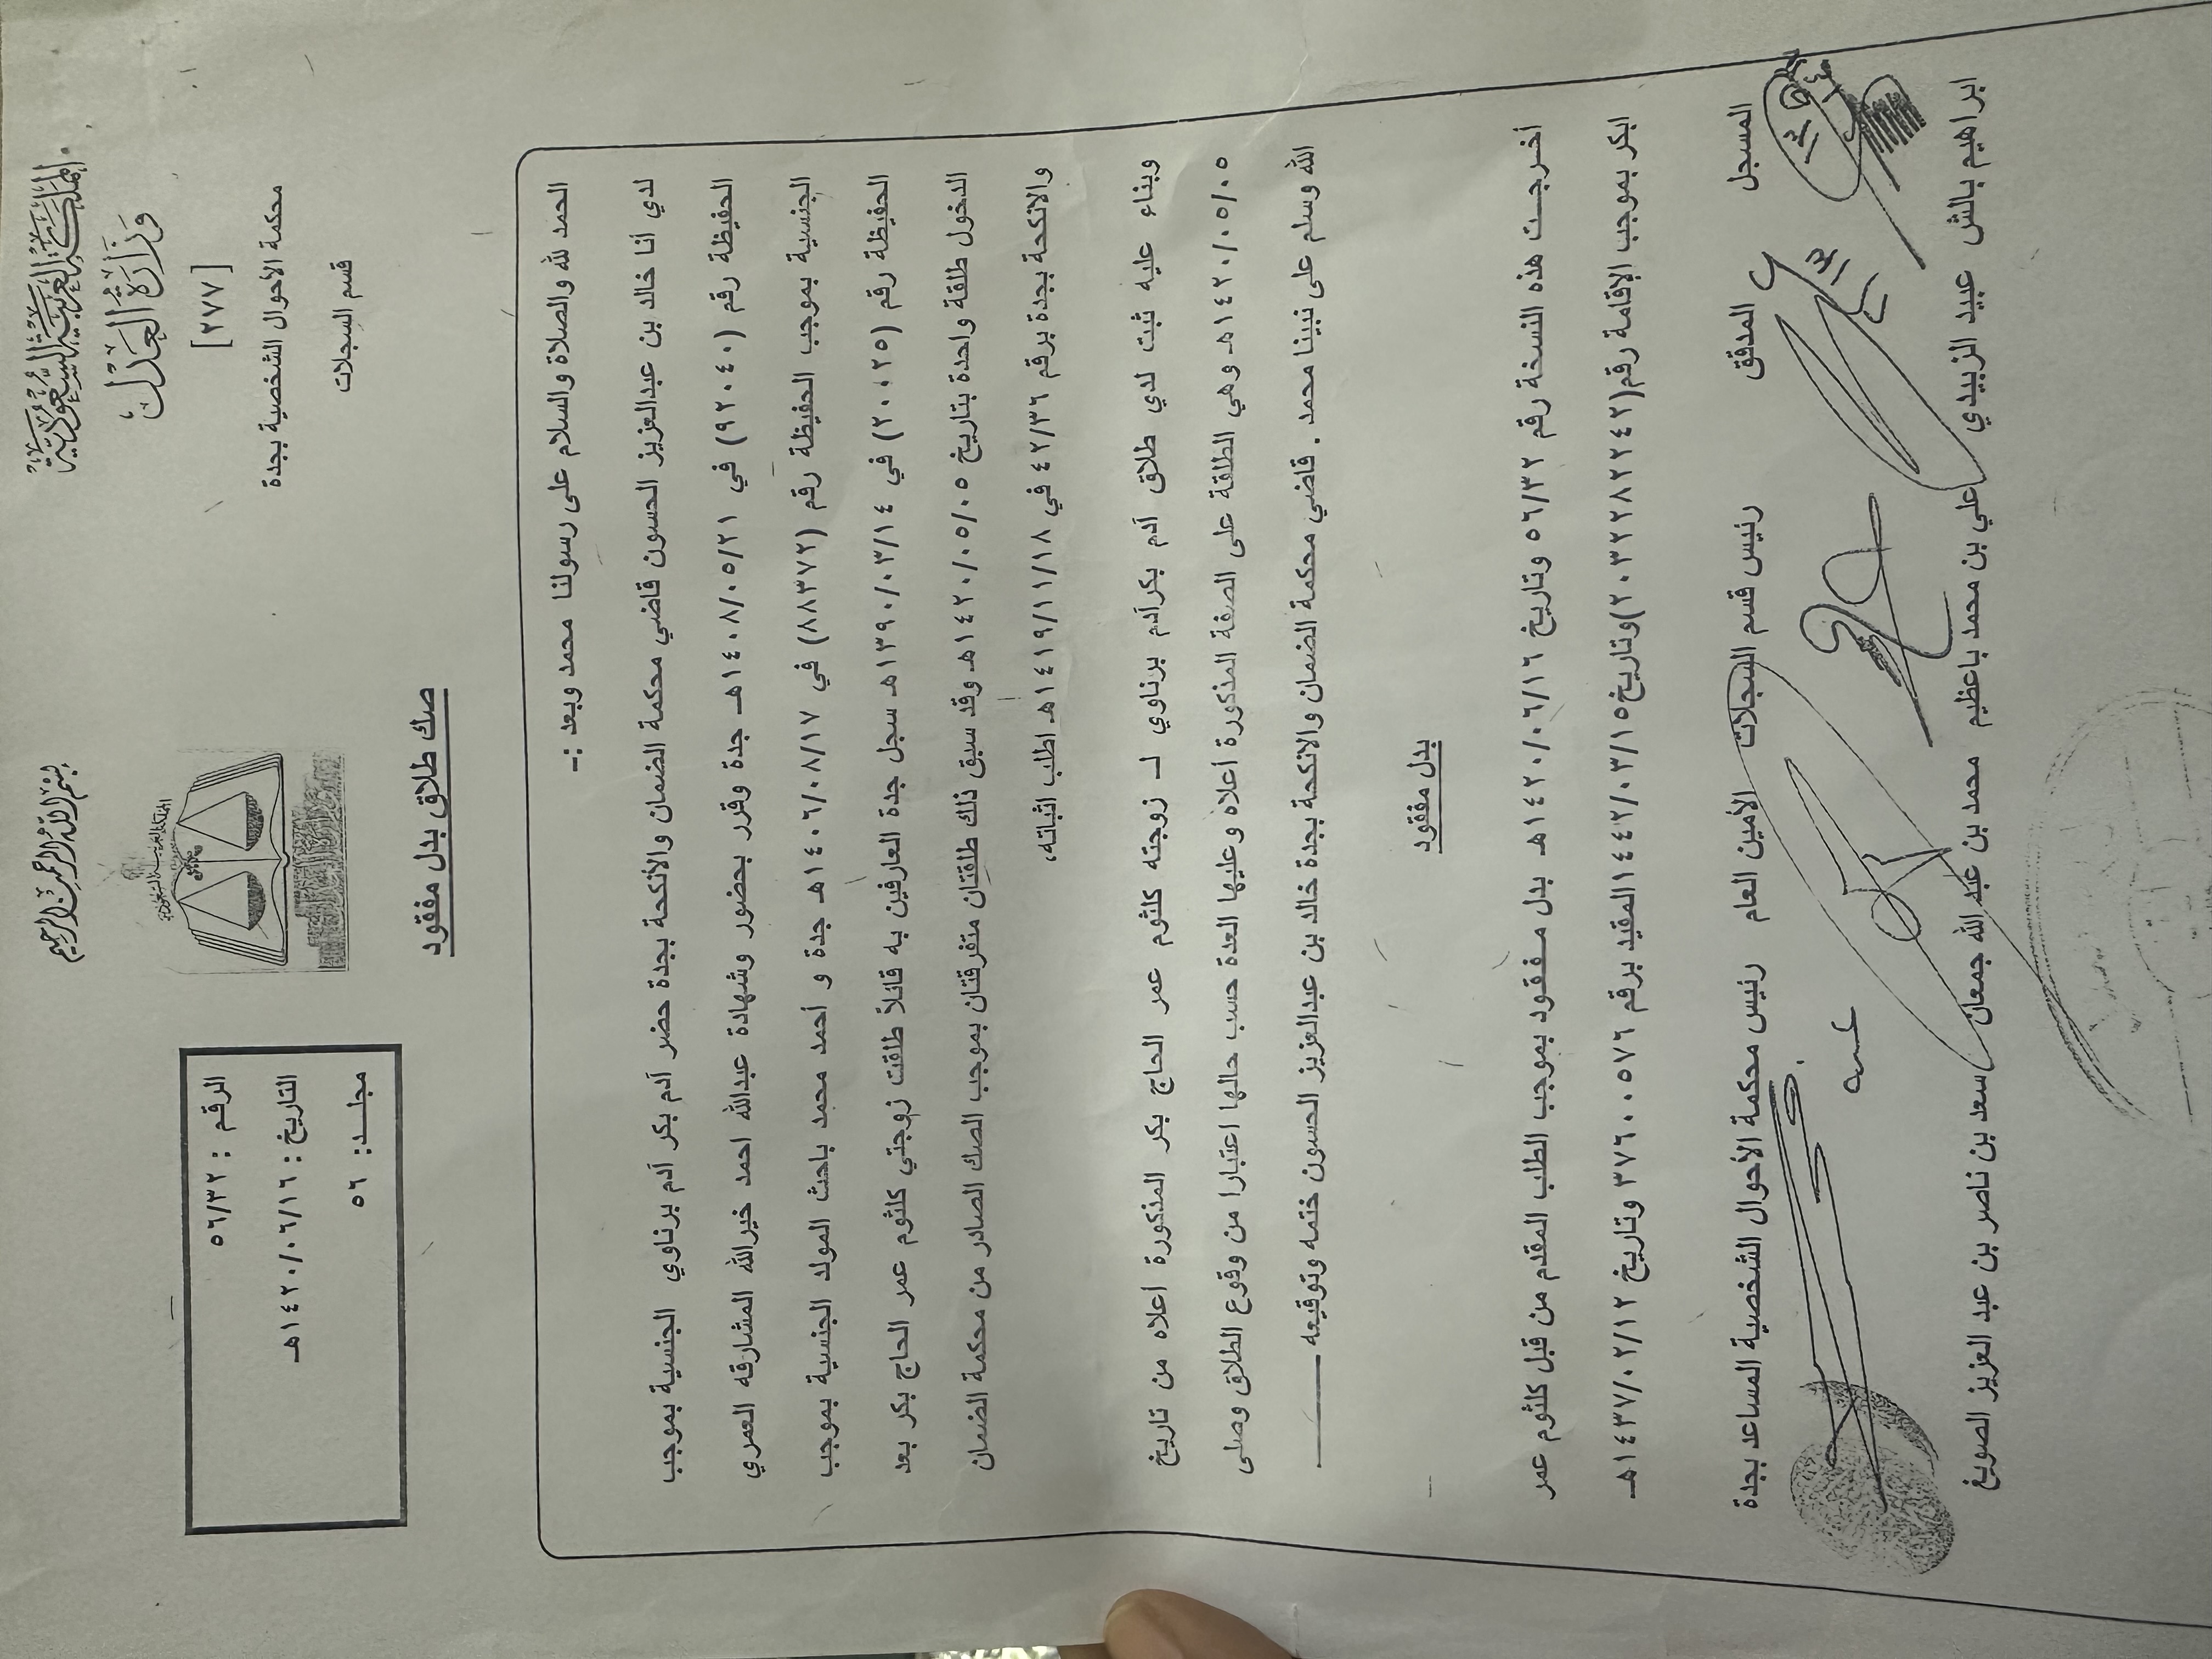 بسم الله الرحمن الرحيم
المملكة العربية السعودية
وزارة العدل
[٢٧٧]
محكمة الأحوال الشخصية بجدة
قسم السجلات
الرقم : ٥٦/٣٢
التاريخ : ١٤٢٠/٠٦/١٦هـ
مجلد: ٥٦
صك طلاق بدل مفقود
الحمد لله والصلاة والسلام على رسولنا محمد وبعد :-
لدي أنا خالد بن عبدالعزيز الحسون قاضي محكمة الضمان والأنكحة بجدة حضر آدم بكر آدم برناوي الجنسية بموجب
الحفيظة رقم (٩٢٠٤٠) في ١٤٠٨/٠٥/٢١هـ جدة وقرر بحضور وشهادة عبدالله احمد خيرالله المشارقه العمري
الجنسية بموجب الحفيظة رقم (٨٨٣٧٢) في ١٤٠٦/٠٨/١٧هـ جدة و أحمد محمد باحث المولد الجنسية بموجب
الحفيظة رقم (٢٠٠٢٥) في ١٣٩٠/٠٣/١٤هـ سجل جدة العارفين به قائلاً طلقت زوجتي كلثوم عمر الحاج بكر بعد
الدخول طلقة واحدة بتاريخ ١٤٢٠/٠٥/٠٥هـ وقد سبق ذلك طلقتان متفرقتان بموجب الصك الصادر من محكمة الضمان
والانكحة بجدة برقم ٤٢/٣٦ في ١٤١٩/١١/١٨هـ اطلب اثباته،
وبناء عليه ثبت لدي طلاق آدم بكرآدم برناوي لـ زوجته كلثوم عمر الحاج بكر المذكورة اعلاه من تاريخ
١٤٢٠/٠٥/٠٥هـ وهي الطلقة على الصفة المذكورة اعلاه وعليها العدة حسب حالها اعتبارا من وقوع الطلاق وصلى
الله وسلم على نبينا محمد . قاضي محكمة الضمان والانكحة بجدة خالد بن عبدالعزيز الحسون ختمه وتوقيعه
بدل مفقود
أخرجت هذه النسخة رقم ٥٦/٣٢ وتاريخ ١٤٢٠/٠٦/١٦هـ بدل مفقود بموجب الطلب المقدم من قبل كلثوم عمر
ابكر بموجب الإقامة رقم(٢٠٣٢٢٨٢٢٤٢)وتاريخ١٤٤٢/٠٣/١٥المقيد برقم ٣٧٦٠٠٥٧٦ وتاريخ ١٤٣٧/٠٢/١٢هـ
المسجل المدقق رئيس قسم السجلات الأمين العام رئيس محكمة الأحوال الشخصية المساعد بجدة
ابراهيم بالش عبيد الزبيدي علي بن محمد باعظيم محمد بن عبد الله جمعان سعد بن ناصر بن عبد العزيز الصويغ